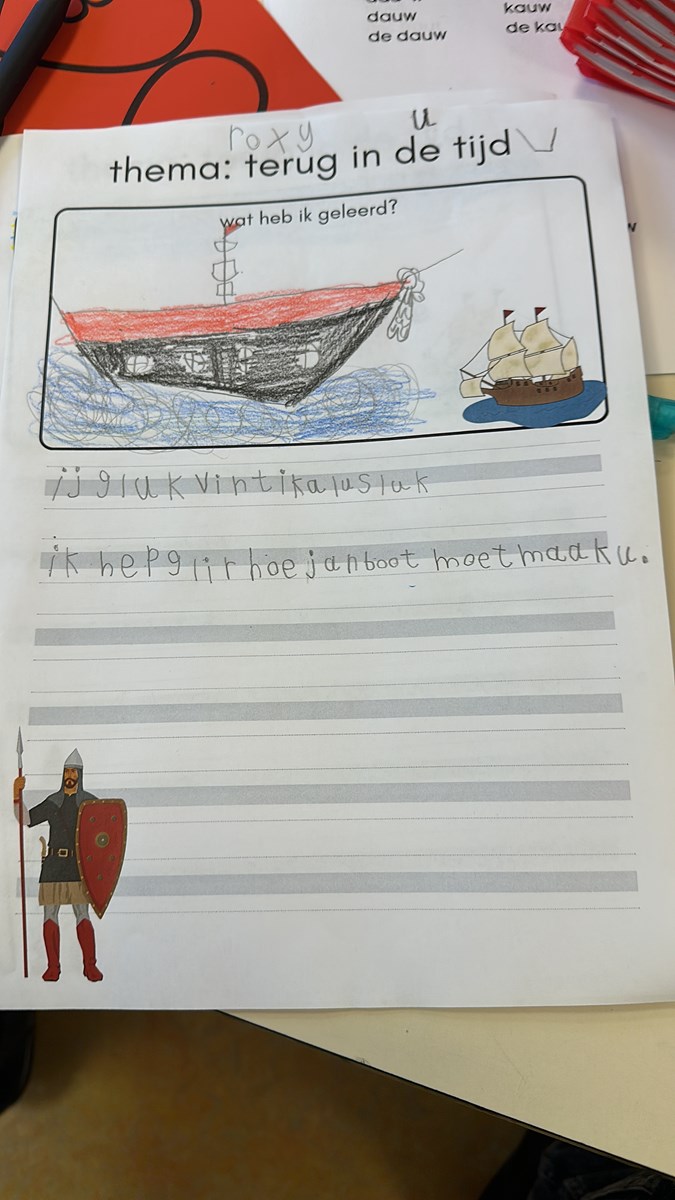 dauw
de dauw
kauw
roxy
u
thema: terug in de tijd
wat heb ik geleerd?
ijglukvintikaluslak
ik hepglirhoejanboot moetmaaku.